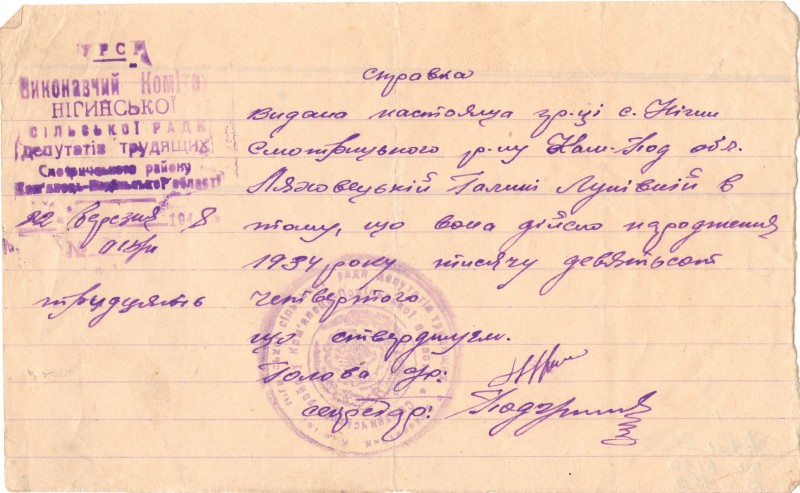 УРСР
Виконавчий Коміте
НІГИНСЬКОЇ
СІЛЬСЬКОЇ РАДИ
депутатів трудящих
Смотрицького району
Кам'янець-Подільської області
22 березня 1948
справка
видана настояща гр-ці с. Нігин
Смотрицького р-ну Кам-Под обл.
Ляховецькій Галині Лупівній в
тому, що вона дійсно народження
1934 року тисячу девятьсот
тридцять четвертого
що стверджуєм.
Голова с/р:
секретар: